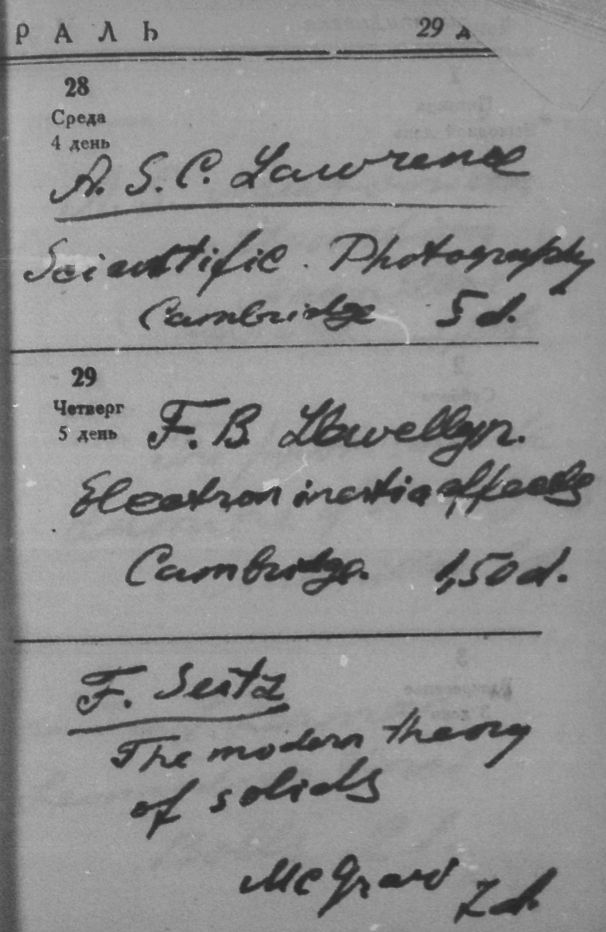 РАЛЬ 29 д
28
Среда
4 день
A. S. C. Lawrence
Scientific Photography
Cambridge 5 d.
29
Четверг
5 день
F. B. Llewellyn.
Electron inertia effects
Cambridge. 1,50 d.
F. Seitz
The modern theory
of solids
McGraw 7 d.